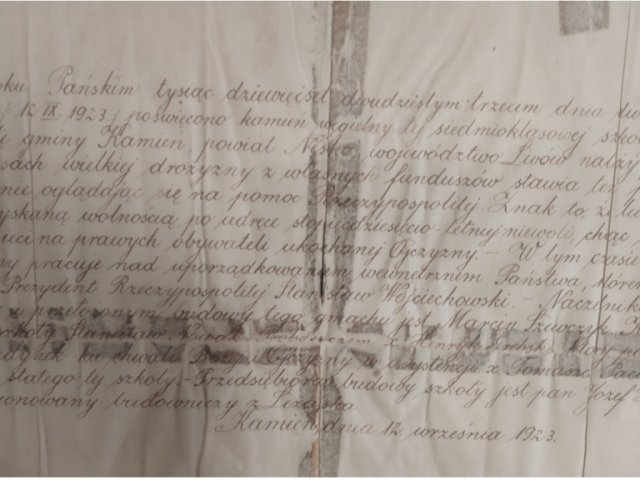 oku Pańskim tysiąc dziewięćset dwudziestym trzecim dnia dw
12 IX. 1923 poświęcono kamień węgielny tej siedmioklasowej szko
gminy Kamień, powiat Nisko, województwo Lwów należy
sach wielkiej drożyzny z własnych funduszów stawia też
nie oglądając się na pomoc Rzeczypospolitej. Znak to, że lu
yskaną wolnością po udręce stopięćdziesięcio-letniej niewoli, chąc
ieci na prawych obywateli ukochanej Ojczyzny. – W tym czasie
ny pracuje nad uporządkowaniem wewnętrznem Państwa, któren
Prezydent Rzeczypospolitej Stanisław Wojciechowski. – Naczelnik
przełożonym budowy tego gmachu jest Marcin Szewczyk
szkoły Stanisław Nowak x Henryk który po
dynek ku chwale Boga i Ojczyzny w asystencji x Tomasza
statego tej szkoły. – Przedsiębiorcą budowy szkoły jest pan Józef
jonowany budowniczy z Leżajska
Kamień dnia 12 września 1923.